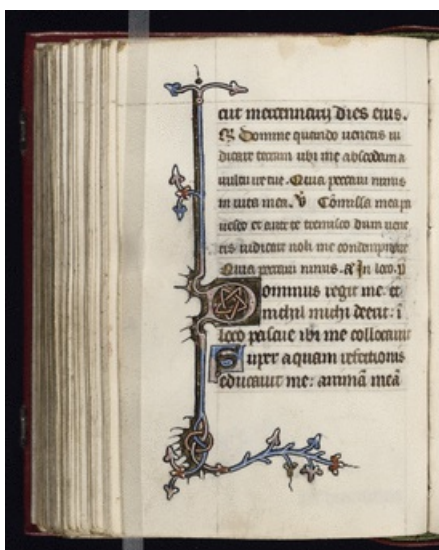 cut mercennarij dies eius.
R. Domine quando ueneris iu
dicare terram ubi me abscondam a
uultu ire tue. Quia peccaui nimis
in uita mea. V Cōmissa mea pa
uesco et ante te erubesco dum uene
ris iudicare noli me condempnare
Quia peccaui nimis. a In loco. p
Dominus regit me et
michil michi deerit: i
loco pascue ibi me collocauit
Super aquam refectionis
educauit me: animā meā